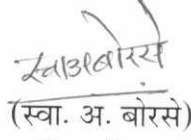 स्वाअबोरसे
(स्वा. अ. बोरसे)